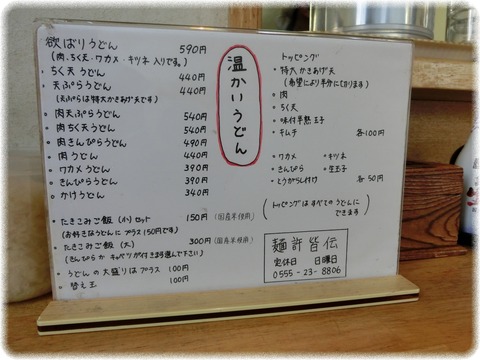 欲ばりうどん 590円
(肉、ちく天・ワカメ・キツネ入りです。)
・ちく天うどん 440円
・天ぷらうどん 440円
(天ぷらは特大かきあげ天です)
・肉天ぷらうどん 540円
・肉ちく天うどん 540円
・肉きんぴらうどん 490円
・肉うどん 440円
・ワカメうどん 390円
・きんぴらうどん 390円
・かけうどん 340円
・たきこみご飯(小)セット 150円(国産米使用)
(お好きなうどんにプラス150円です)
・たきこみご飯(大) 300円(国産米使用)
(きんぴらかキャベツが付きます選んで下さい)
・うどんの大盛りはプラス 100円
・替え玉 100円
温かいうどん
トッピング
・特大かきあげ天
(希望により半分に切ります)
・肉
・ちく天
・味付半熟玉子
・キムチ 各100円
・ワカメ ・キツネ
・きんぴら ・生玉子
・とうがらし付け 各50円
(トッピングはすべてのうどんに
できます)
麺許皆伝
定休日 日曜日
0555-23-8806